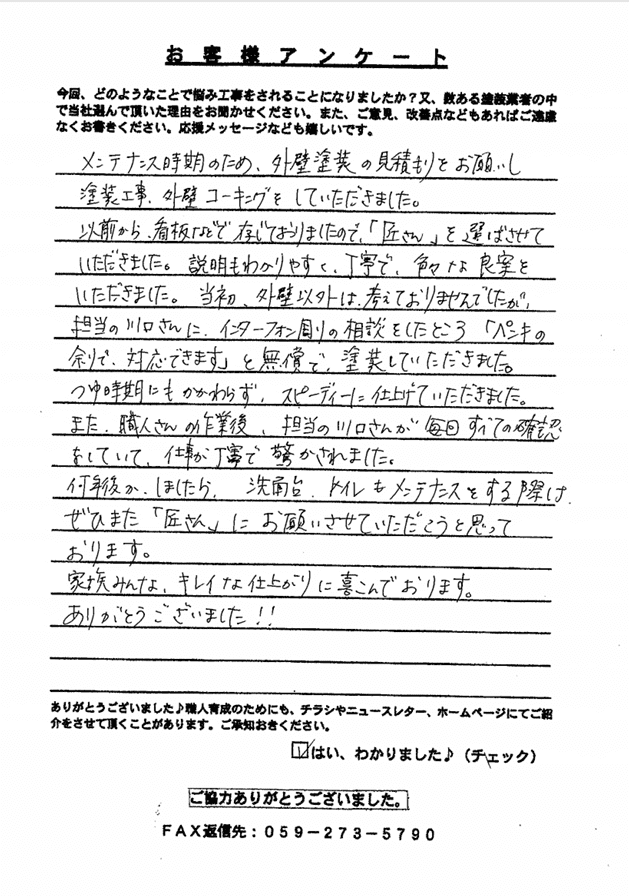 お客様アンケート
今回、どのようなことで悩み工事をされることになりましたか？又、数ある塗装業者の中
で当社選んで頂いた理由をお聞かせください。また、ご意見、改善点などもあればご遠慮
なくお書きください。応援メッセージなども嬉しいです。
メンテナンス時期のため、外壁塗装の見積もりをお願いし
塗装工事、外壁コーキングをしていただきました。
以前から、看板などで存じておりましたので、「匠さん」を選ばさせて
いただきました。説明もわかりやすく、丁寧で、色々な良案を
いただきました。当初、外壁以外は、考えておりませんでしたが、
担当の川口さんに、インターフォン周りの相談をしたところ「ペンキの
余りで、対応できます」と無償で、塗装していただきました。
つゆ時期にもかかわらず、スピーディーに仕上げていただきました。
また、職人さんの作業後、担当の川口さんが毎回すべての確認
をしていて、仕事が丁寧で驚かされました。
何年後か、しましたら、洗面台、トイレもメンテナンスをする際は、
ぜひまた「匠さん」にお願いさせていただこうと思って
おります。
家族みんな、キレイな仕上がりに喜こんでおります。
ありがとうございました!!
ありがとうございました♪職人育成のためにも、チラシやニュースレター、ホームページにてご紹
介をさせて頂くことがあります。ご承知おきください。
はい、わかりました♪（チェック）
ご協力ありがとうございました。
FAX返信先：059－273－5790